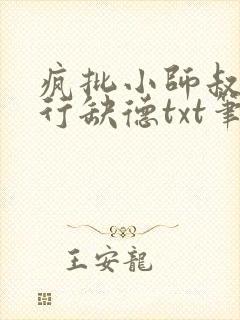 疯批小师叔
行缺德txt笔
王安龍